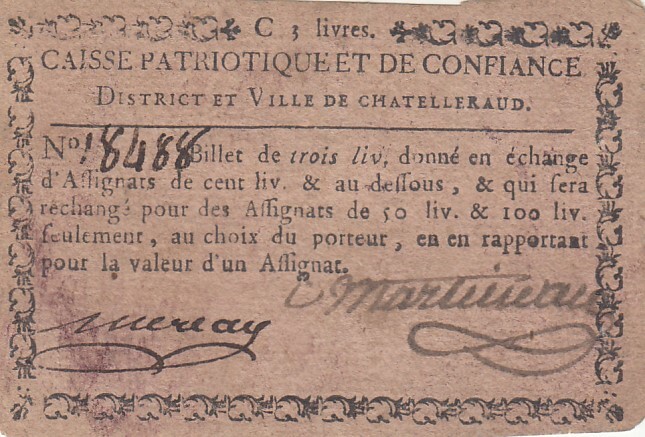 C 3 livres.
CAISSE PATRIOTIQUE ET DE CONFIANCE
DISTRICT ET VILLE DE CHATELLERAUD.
No. 18488 Billet de trois liv, donné en échange
d'Aſſignats de cent liv. & au-deſſous, & qui ſera
rechangé pour des Aſſignats de 50 liv. & 100 liv.
ſeulement, au choix du porteur, en en rapportant
pour la valeur d'un Aſſignat.
Martineau